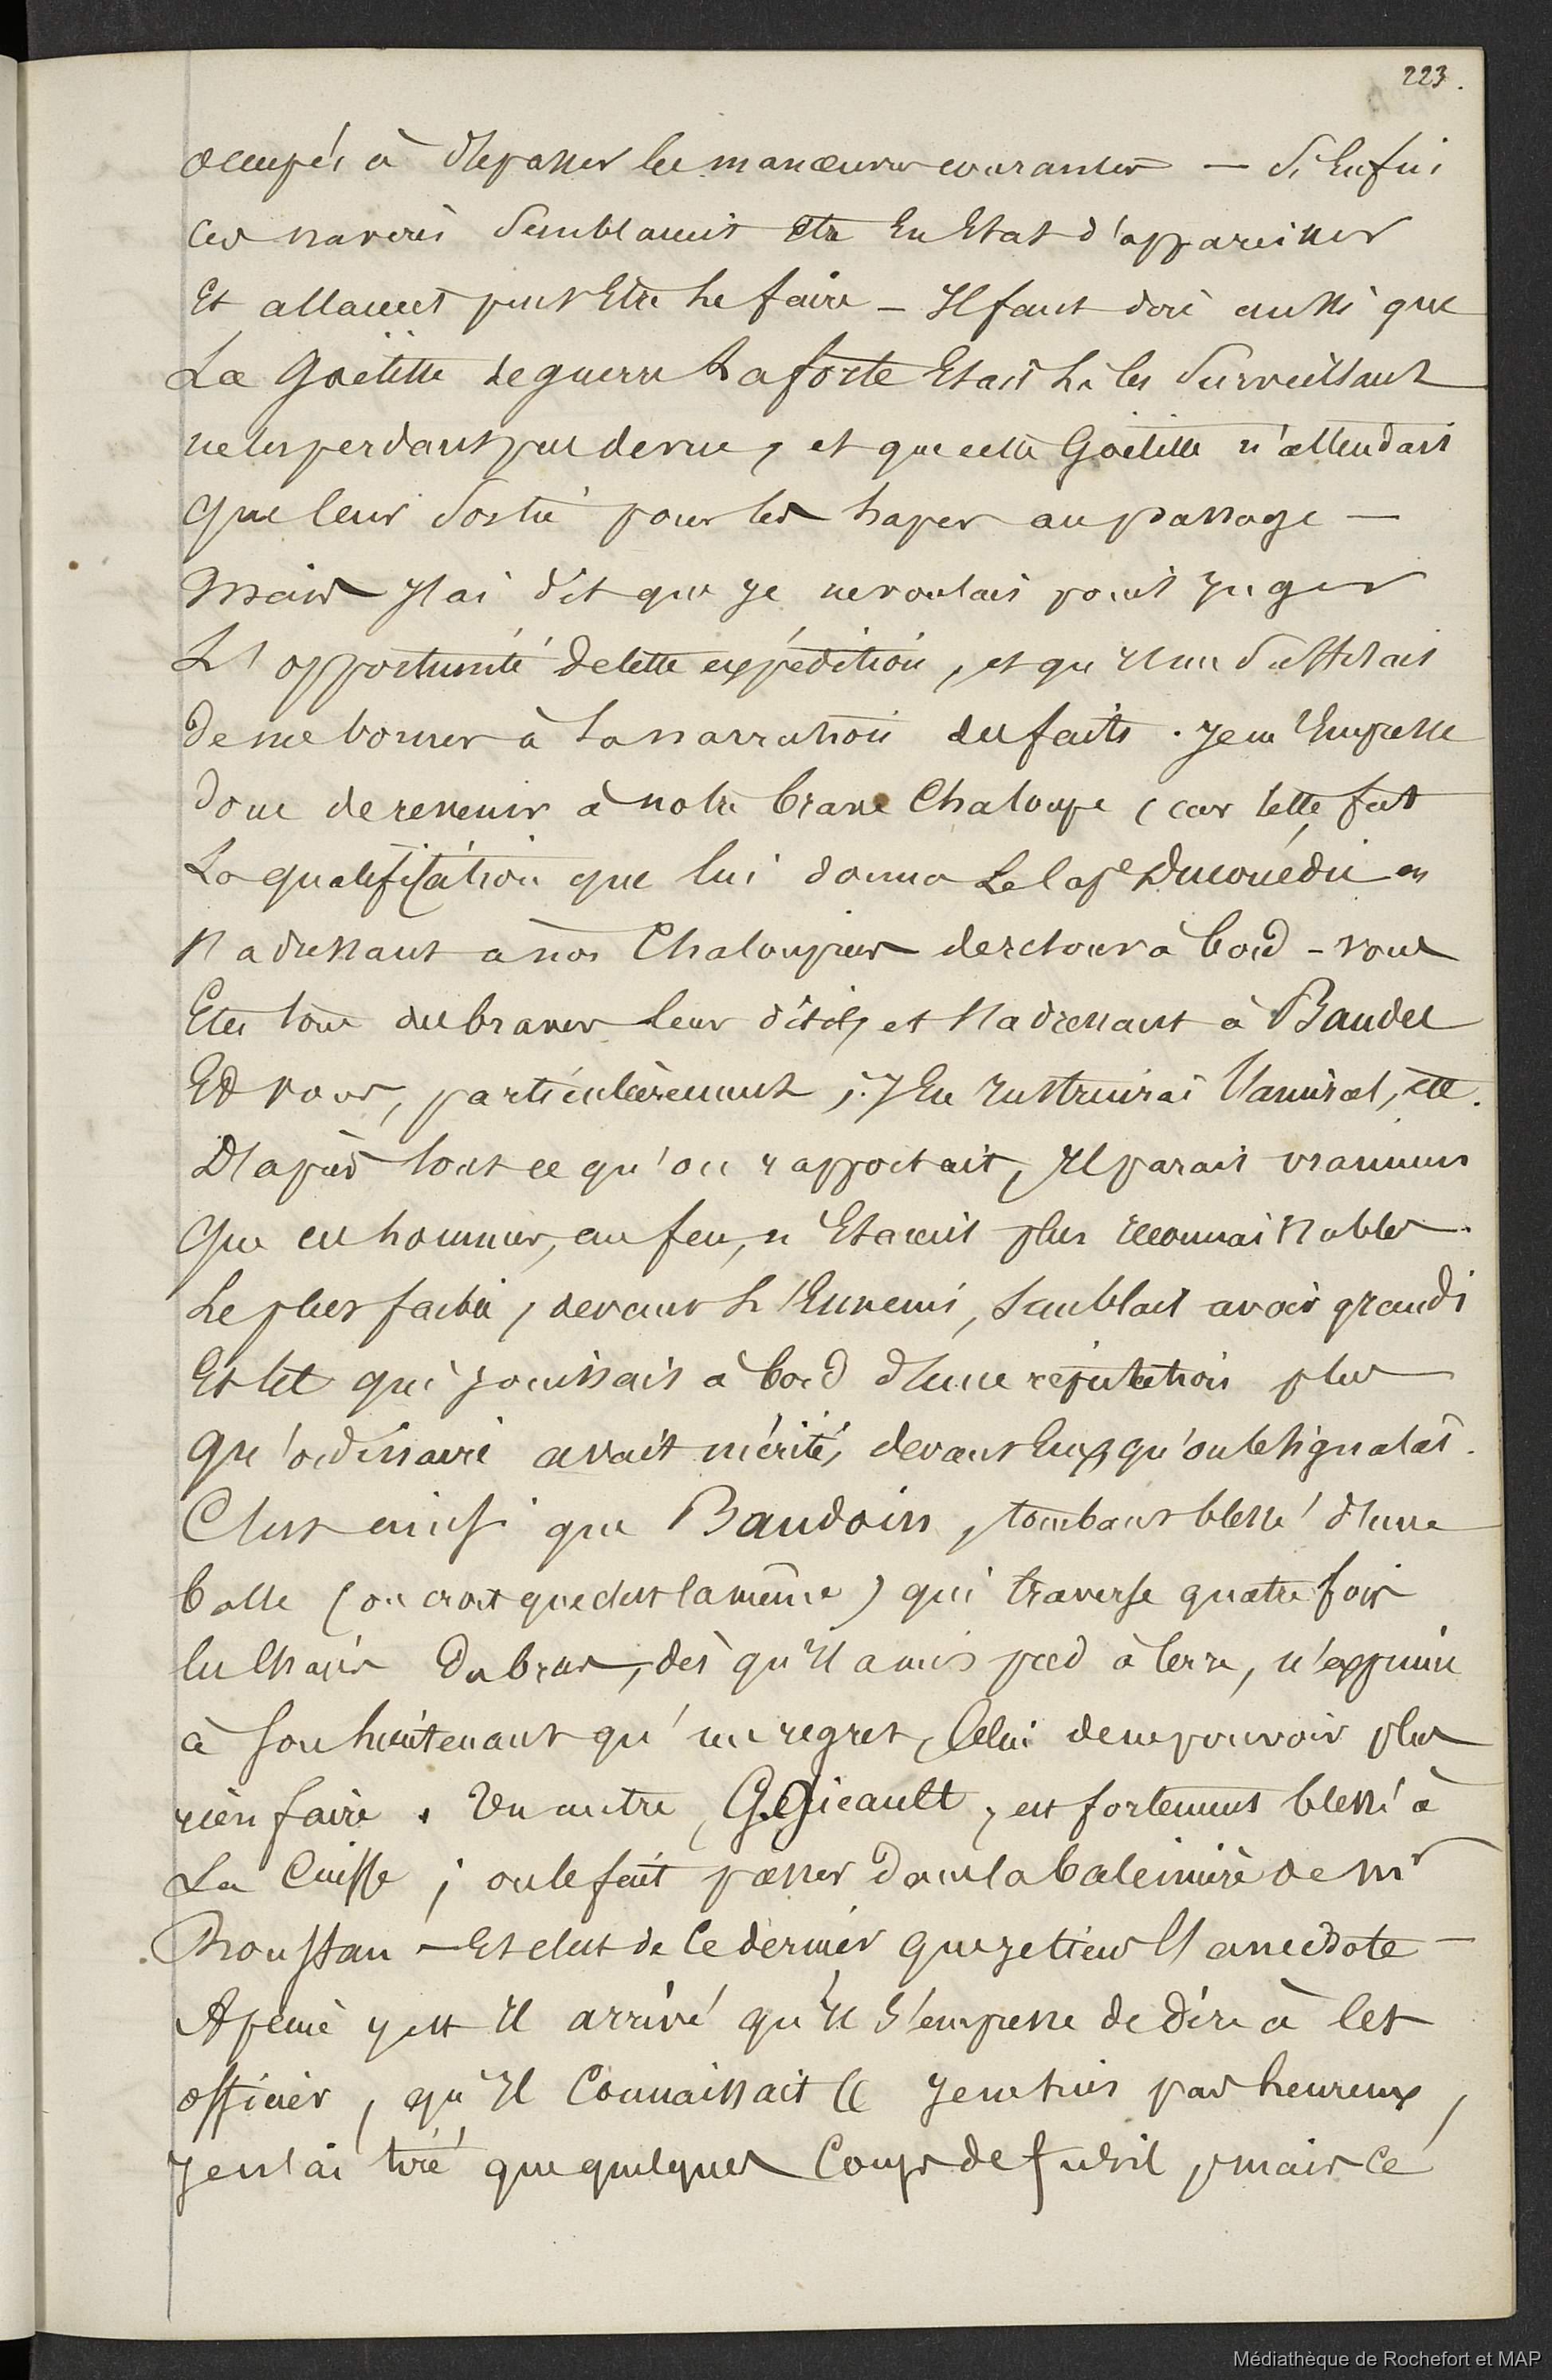 223.
occupés à dépasser les manœuvres courantes — Si Enfin
ces navires Semblaient être En Etat d'appareiller
Et allaient peut Etre Le faire — Il faut dire aussi que
La Goëlette de guerre La forte Etait Là les Surveillant
ne les perdant pas de vue, et que cette Goëlette n'attendait
que leur Sortie pour les haper au passage —
Mais J'ai dit que je ne voulais point juger
L'opportunité de cette expédition, et qu'Il me Suffisait
de me borner à La narration des faits. Je m'Empresse
donc de revenir à notre brave Chaloupe (car telle fut
La qualification que lui donna Le Cape Ducouëdic en
S'adressant à nos Chaloupiers de retour à bord — vous
Etes tous des braves leur dit-il, et S'adressant à Baudel
Et vous, particulièrement, j'En Instruirai l'amiral, etc.
D'après tout ce qu'on rapportait, Il parait vraiment
Que ces hommes, au feu, n'Etaient plus reconnaissables.
Le plus faible, devant L'Ennemi, Semblait avoir grandi
Et tel qui jouissait à bord d'une réputation plus
qu'ordinaire avait mérité, devant Eux, qu'on le signalât.
C'est ainsi que Baudoin, tombant blessé d'une
balle (on croit que c'est la même) qui traverse quatre fois
les chairs du bras, dès qu'Il a mis pied à terre, n'exprime
à son lieutenant qu'un regret, Celui de ne pouvoir plus
rien faire. Un autre, Géricault, est fortement blessé à
La Cuisse; on le fait passer dans la baleinière de Mr
Roustan — Et c'est de Ce dernier que je tiens L'anecdote —
A peine y est Il arrivé qu'Il S'empresse de dire à Cet
officier, qu'Il Connaissait « Je ne suis pas heureux,
Je n'ai tiré que quelques Coups de fusil, mais Ce
Médiathèque de Rochefort et MAP